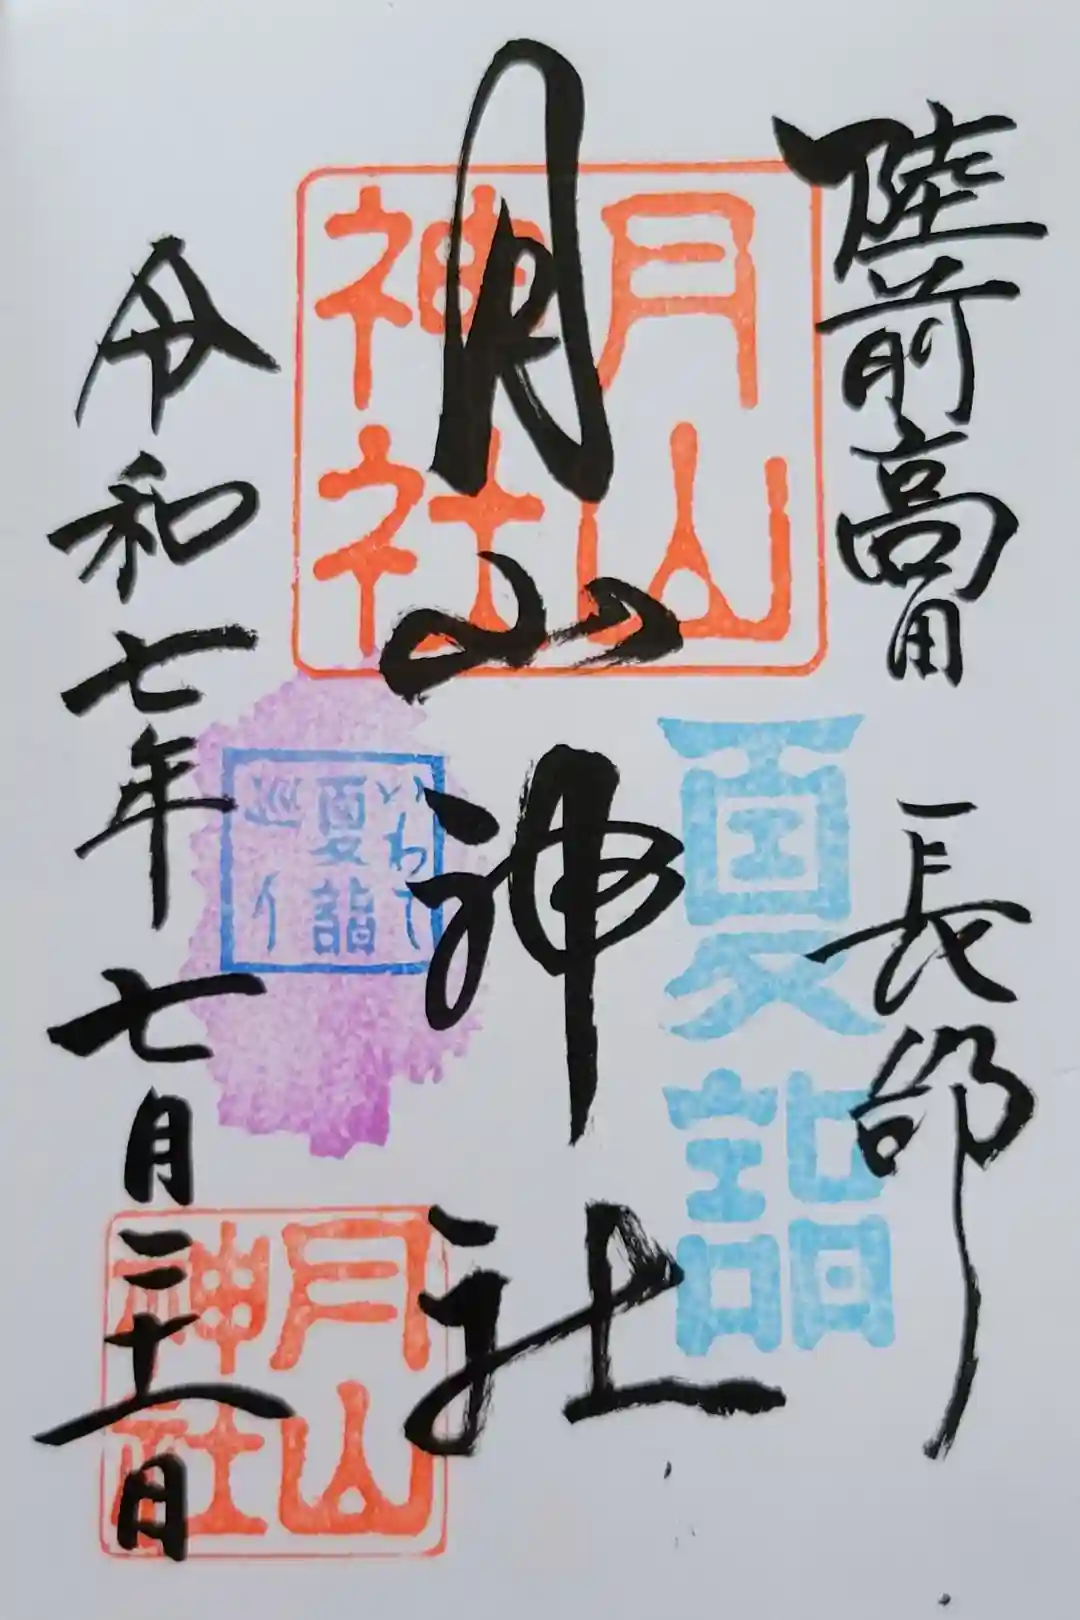 陸前高田 長部
月山神社
令和七年七月三十一日
月山
神社
夏詣
いわて
夏詣
巡り
月山
神社